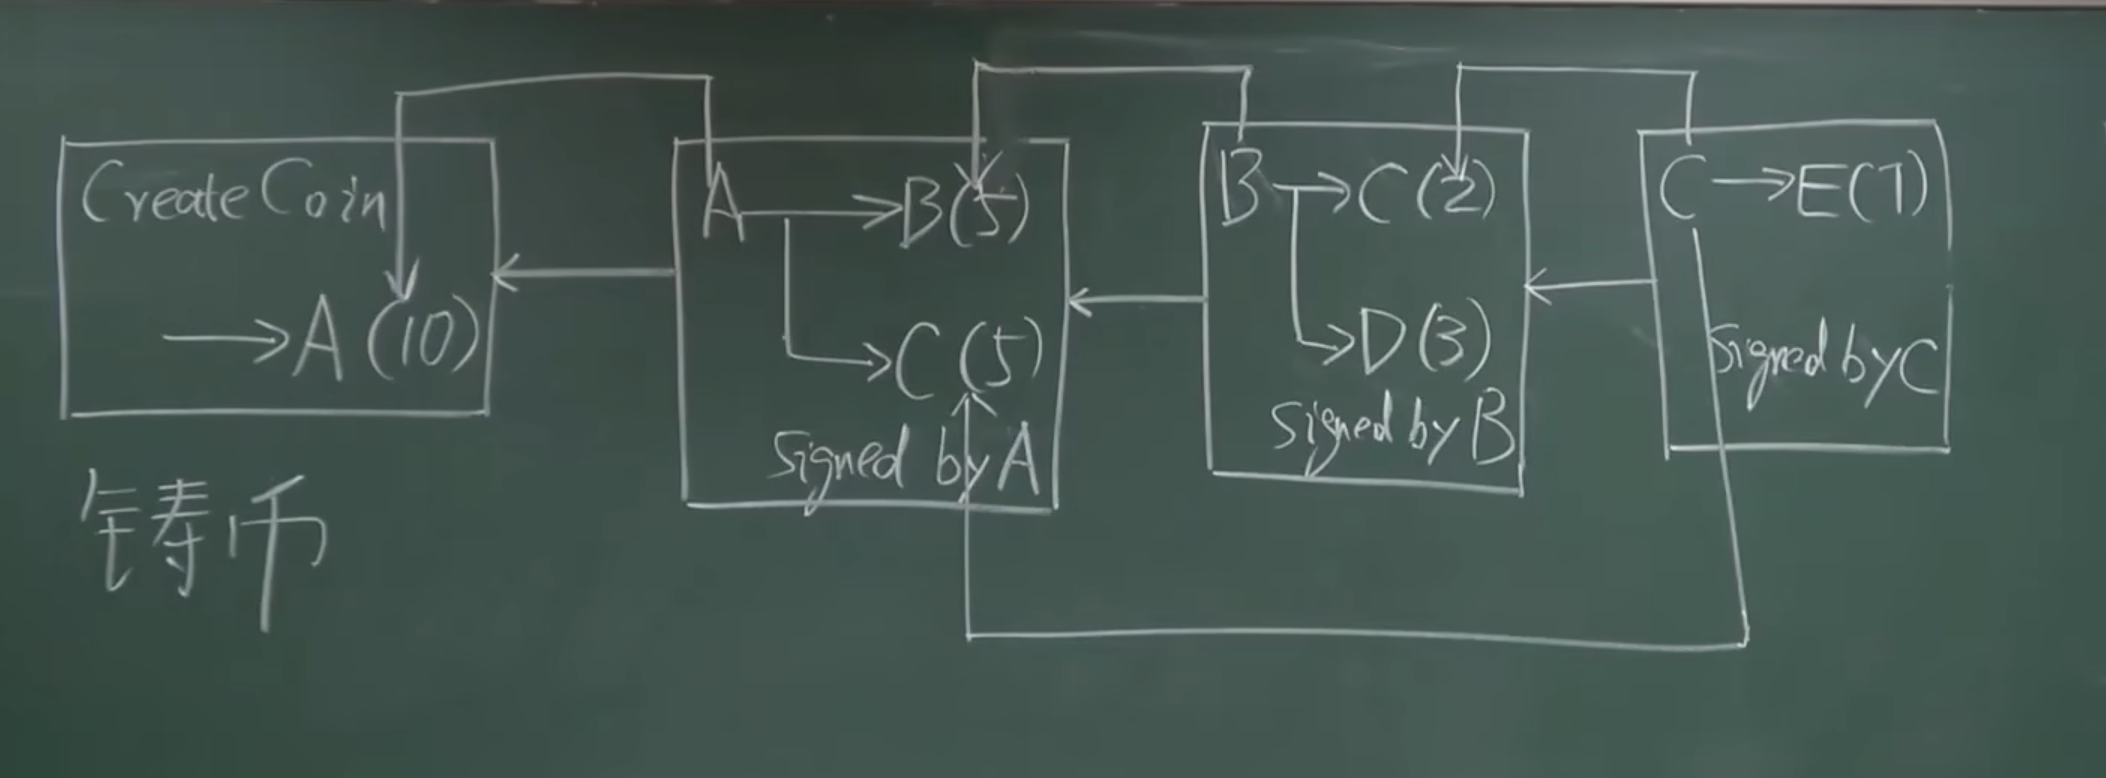 CreateCoin
→A(10)
铸币
A→B(5)
→C(5)
signed by A
B→C(2)
→D(3)
signed by B
C→E(7)
signed by C